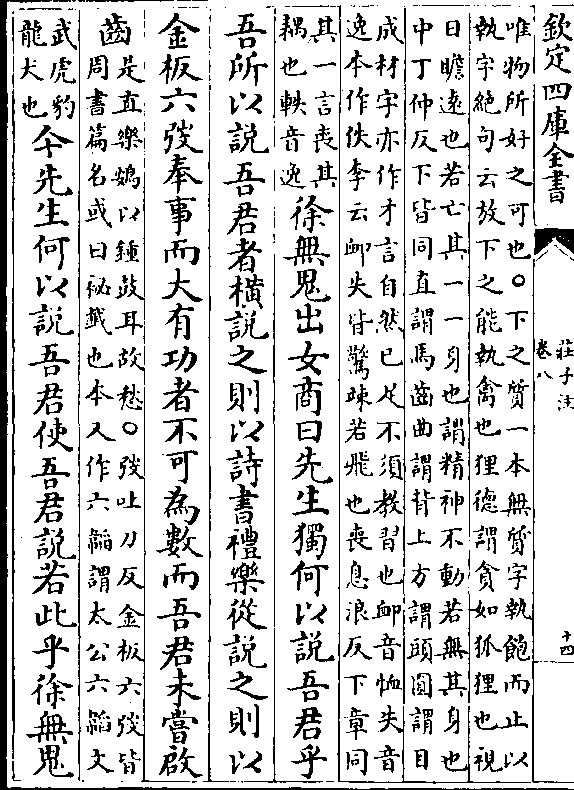 欽定四庫全書
莊子注
卷八
十四
唯物所好之可也○下之質一本無質字執飽而止以
執字絶句云放下之能執禽也狸德謂貪如狐狸也視
日瞻逺也若亡其一一身也謂精神不動若無其身也
中丁仲反下皆同直謂馬齒曲謂背上方謂頭圓謂目
成材字亦作才言自然已足不須教習也䘏音恤失音
逸本作佚李云䘏失皆驚疎若飛也喪息浪反下章同
其一言喪其
耦也軼音逸
徐無鬼出女商曰先生獨何以説吾君乎
吾所以説吾君者横説之則以詩書禮樂從説之則以
金板六弢奉事而大有功者不可為數而吾君未嘗啟
齒
是直樂鴳以鍾鼓耳故愁○弢吐刀反金板六弢皆
周書篇名或曰祕䜟也本又作六韜謂太公六韜文
武虎豹
龍犬也
今先生何以説吾君使吾君説若此乎徐無鬼